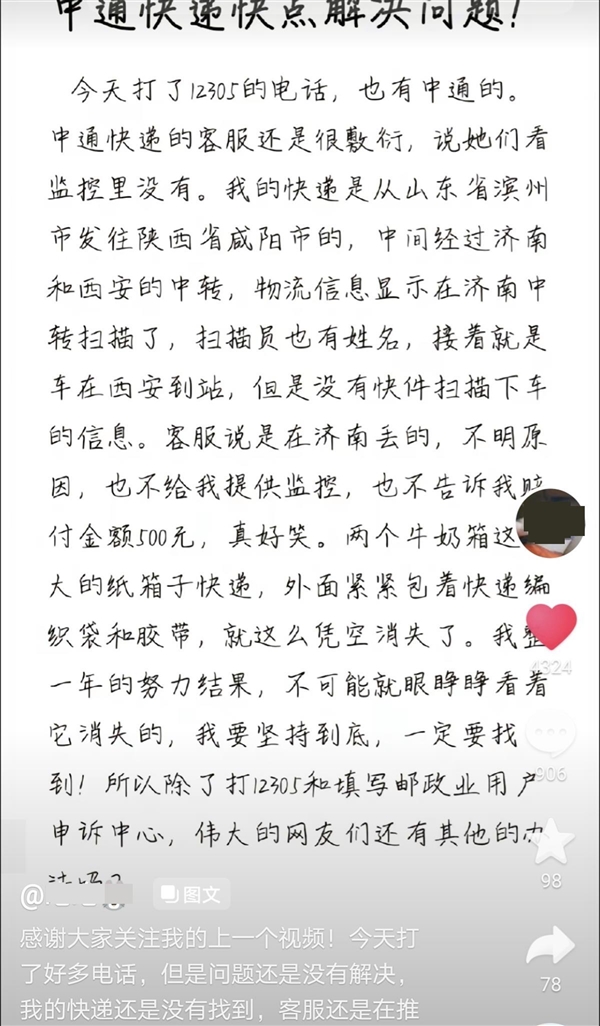 中通快递快点解决问题！
今天打了12305的电话，也有中通的。
中通快递的客服还是很敷衍，说她们看
监控里没有。我的快递是从山东省滨州
市发往陕西省咸阳市的，中间经过济南
和西安的中转，物流信息显示在济南中
转扫描了，扫描员也有姓名，接着就是
车在西安到站，但是没有快件扫描下车
的信息。客服说是在济南丢的，不明原
因，也不给我提供监控，也不告诉我赔
付金额500元，真好笑。两个牛奶箱这
大的纸箱子快递，外面紧紧包着快递编
织袋和胶带，就这么凭空消失了。我整
一年的努力结果，不可能就眼睁睁看着
它消失的，我要坚持到底，一定要找
到！所以除了打12305和填写邮政业用户
申诉中心，伟大的网友们还有其他的办
4324
906
98
78
@
图文
感谢大家关注我的上一个视频！今天打
了好多电话，但是问题还是没有解决，
我的快递还是没有找到，客服还是在推